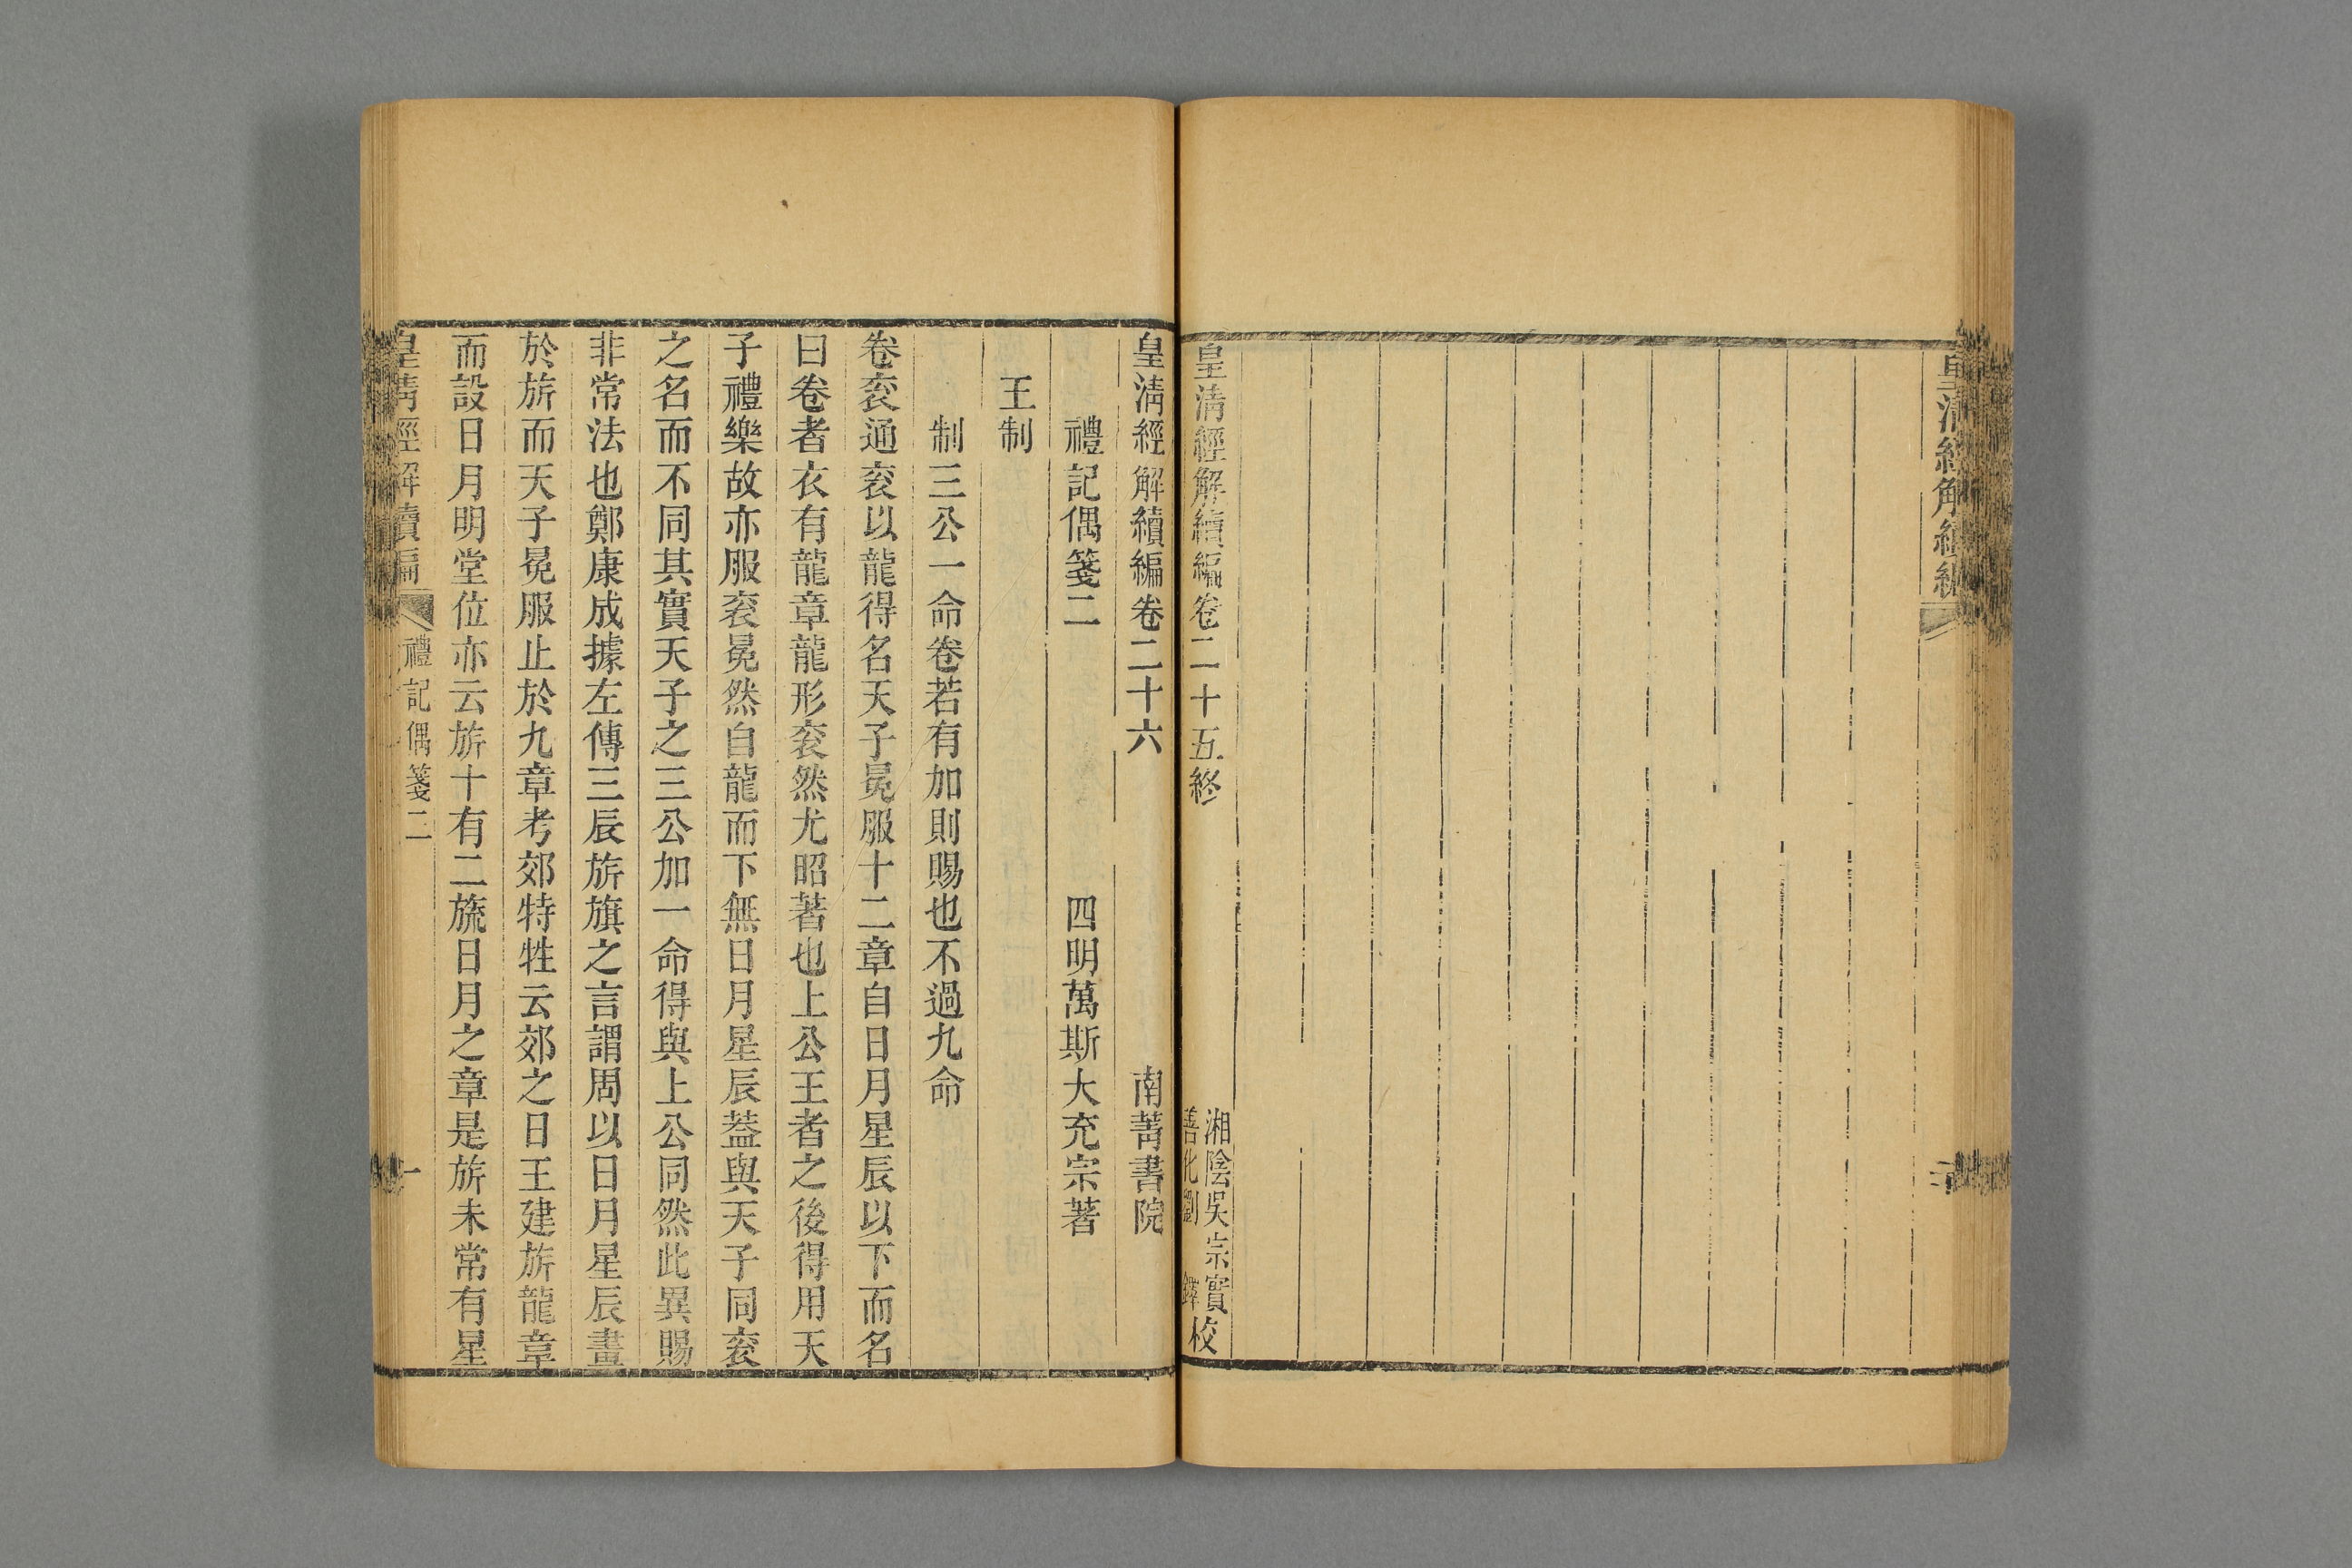 皇清經解續編
皇清經解續編卷二十五終
湘陰吳宗實
善化劉鐸
校
皇清經解續編卷二十六　南菁書院
禮記偶箋二　四明萬斯大充宗著
王制
制三公一命卷若有加則賜也不過九命
卷袞通袞以龍得名天子冕服十二章自日月星辰以下而名
曰卷者衣有龍章龍形袞然尤昭著也上公王者之後得用天
子禮樂故亦服袞冕然自龍而下無日月星辰蓋與天子同袞
之名而不同其實天子之三公加一命得與上公同然此異賜
非常法也鄭康成據左傳三辰旂旗之言謂周以日月星辰畫
於旂而天子冕服止於九章考郊特牲云郊之日王建旂龍章
而設日月明堂位亦云旂十有二旒日月之章是旂未常有星
皇清經解續編　禮記偶箋二　一